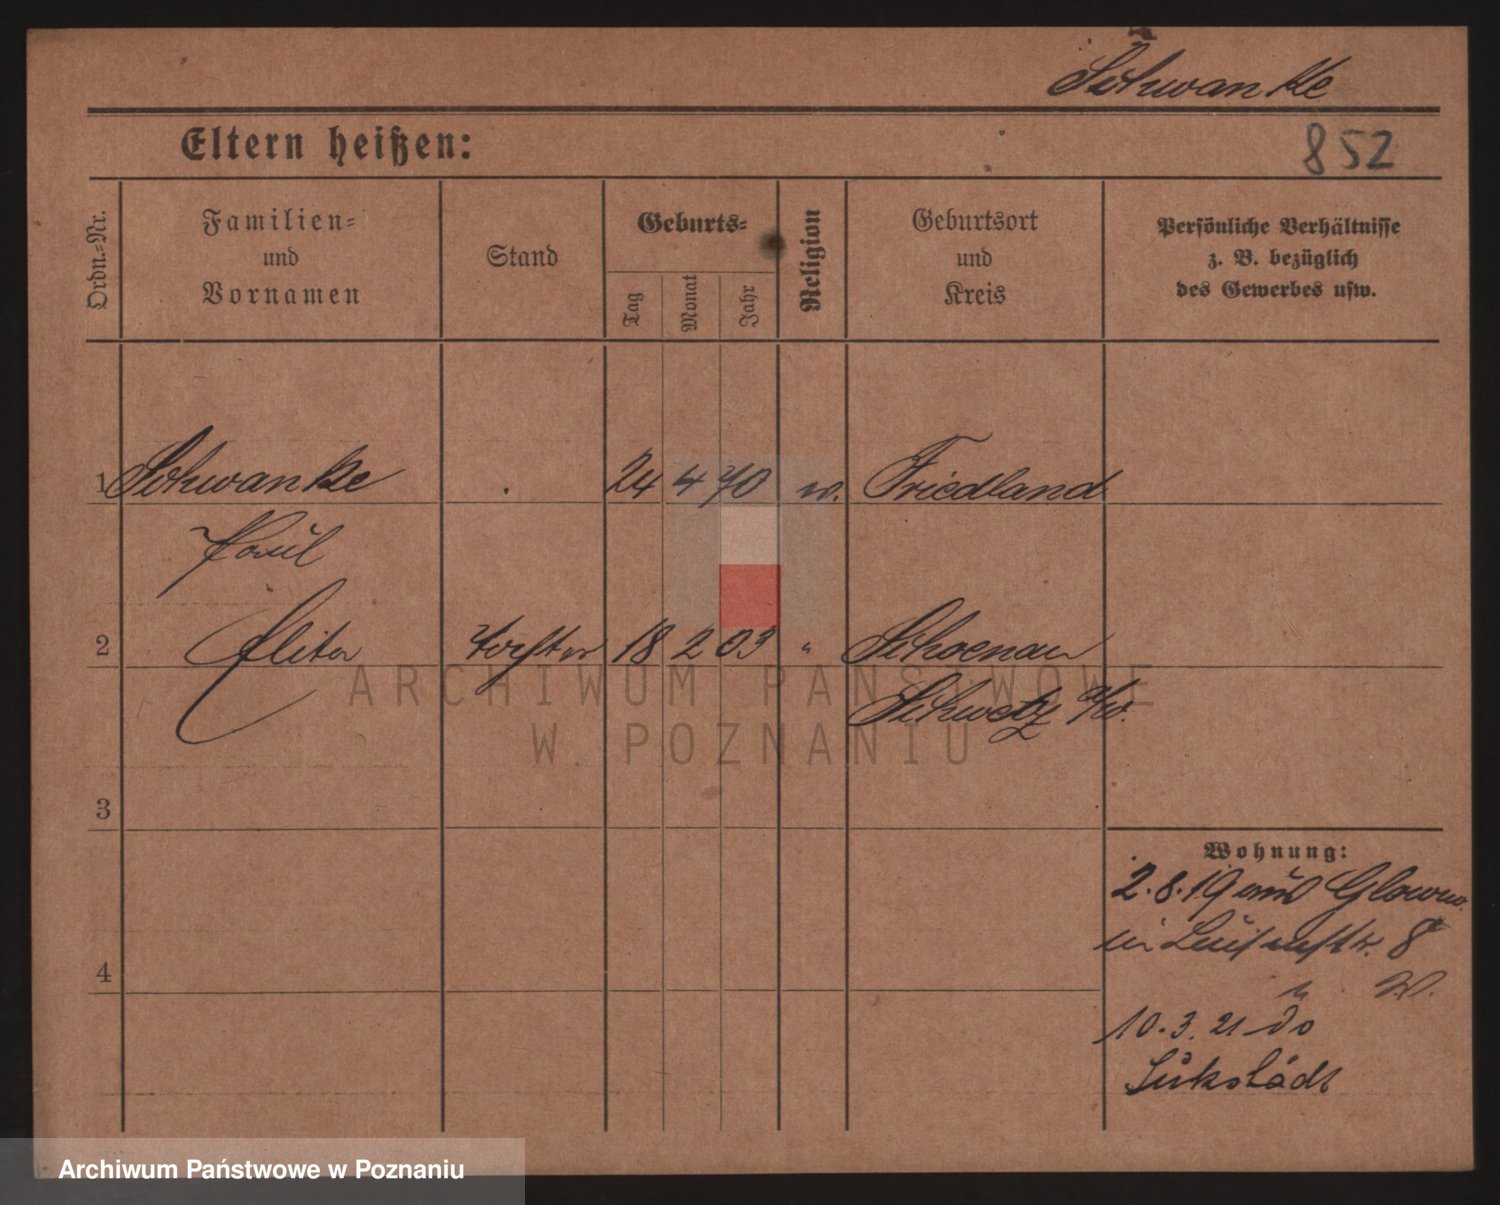 Schwanke
Eltern heißen:
852
Ordn.-Nr.
Familien-
und
Vornamen
Stand
Geburts-
Tag
Monat
Jahr
Religion
Geburtsort
und
Kreis
Persönliche Verhältnisse
z. B. bezüglich
des Gewerbes usw.
1 Schwanke 24 4 70 ev. Friedland
Paul
2 Elita Tochter 18 2 03 " Schoenau
Schwetz a/W.
ARCHIWUM PAŃSTWOWE
W POZNANIU
3
Wohnung:
2.8.19 aus
in Luisenstr. 8
4
10.3.21 do
Archiwum Państwowe w Poznaniu